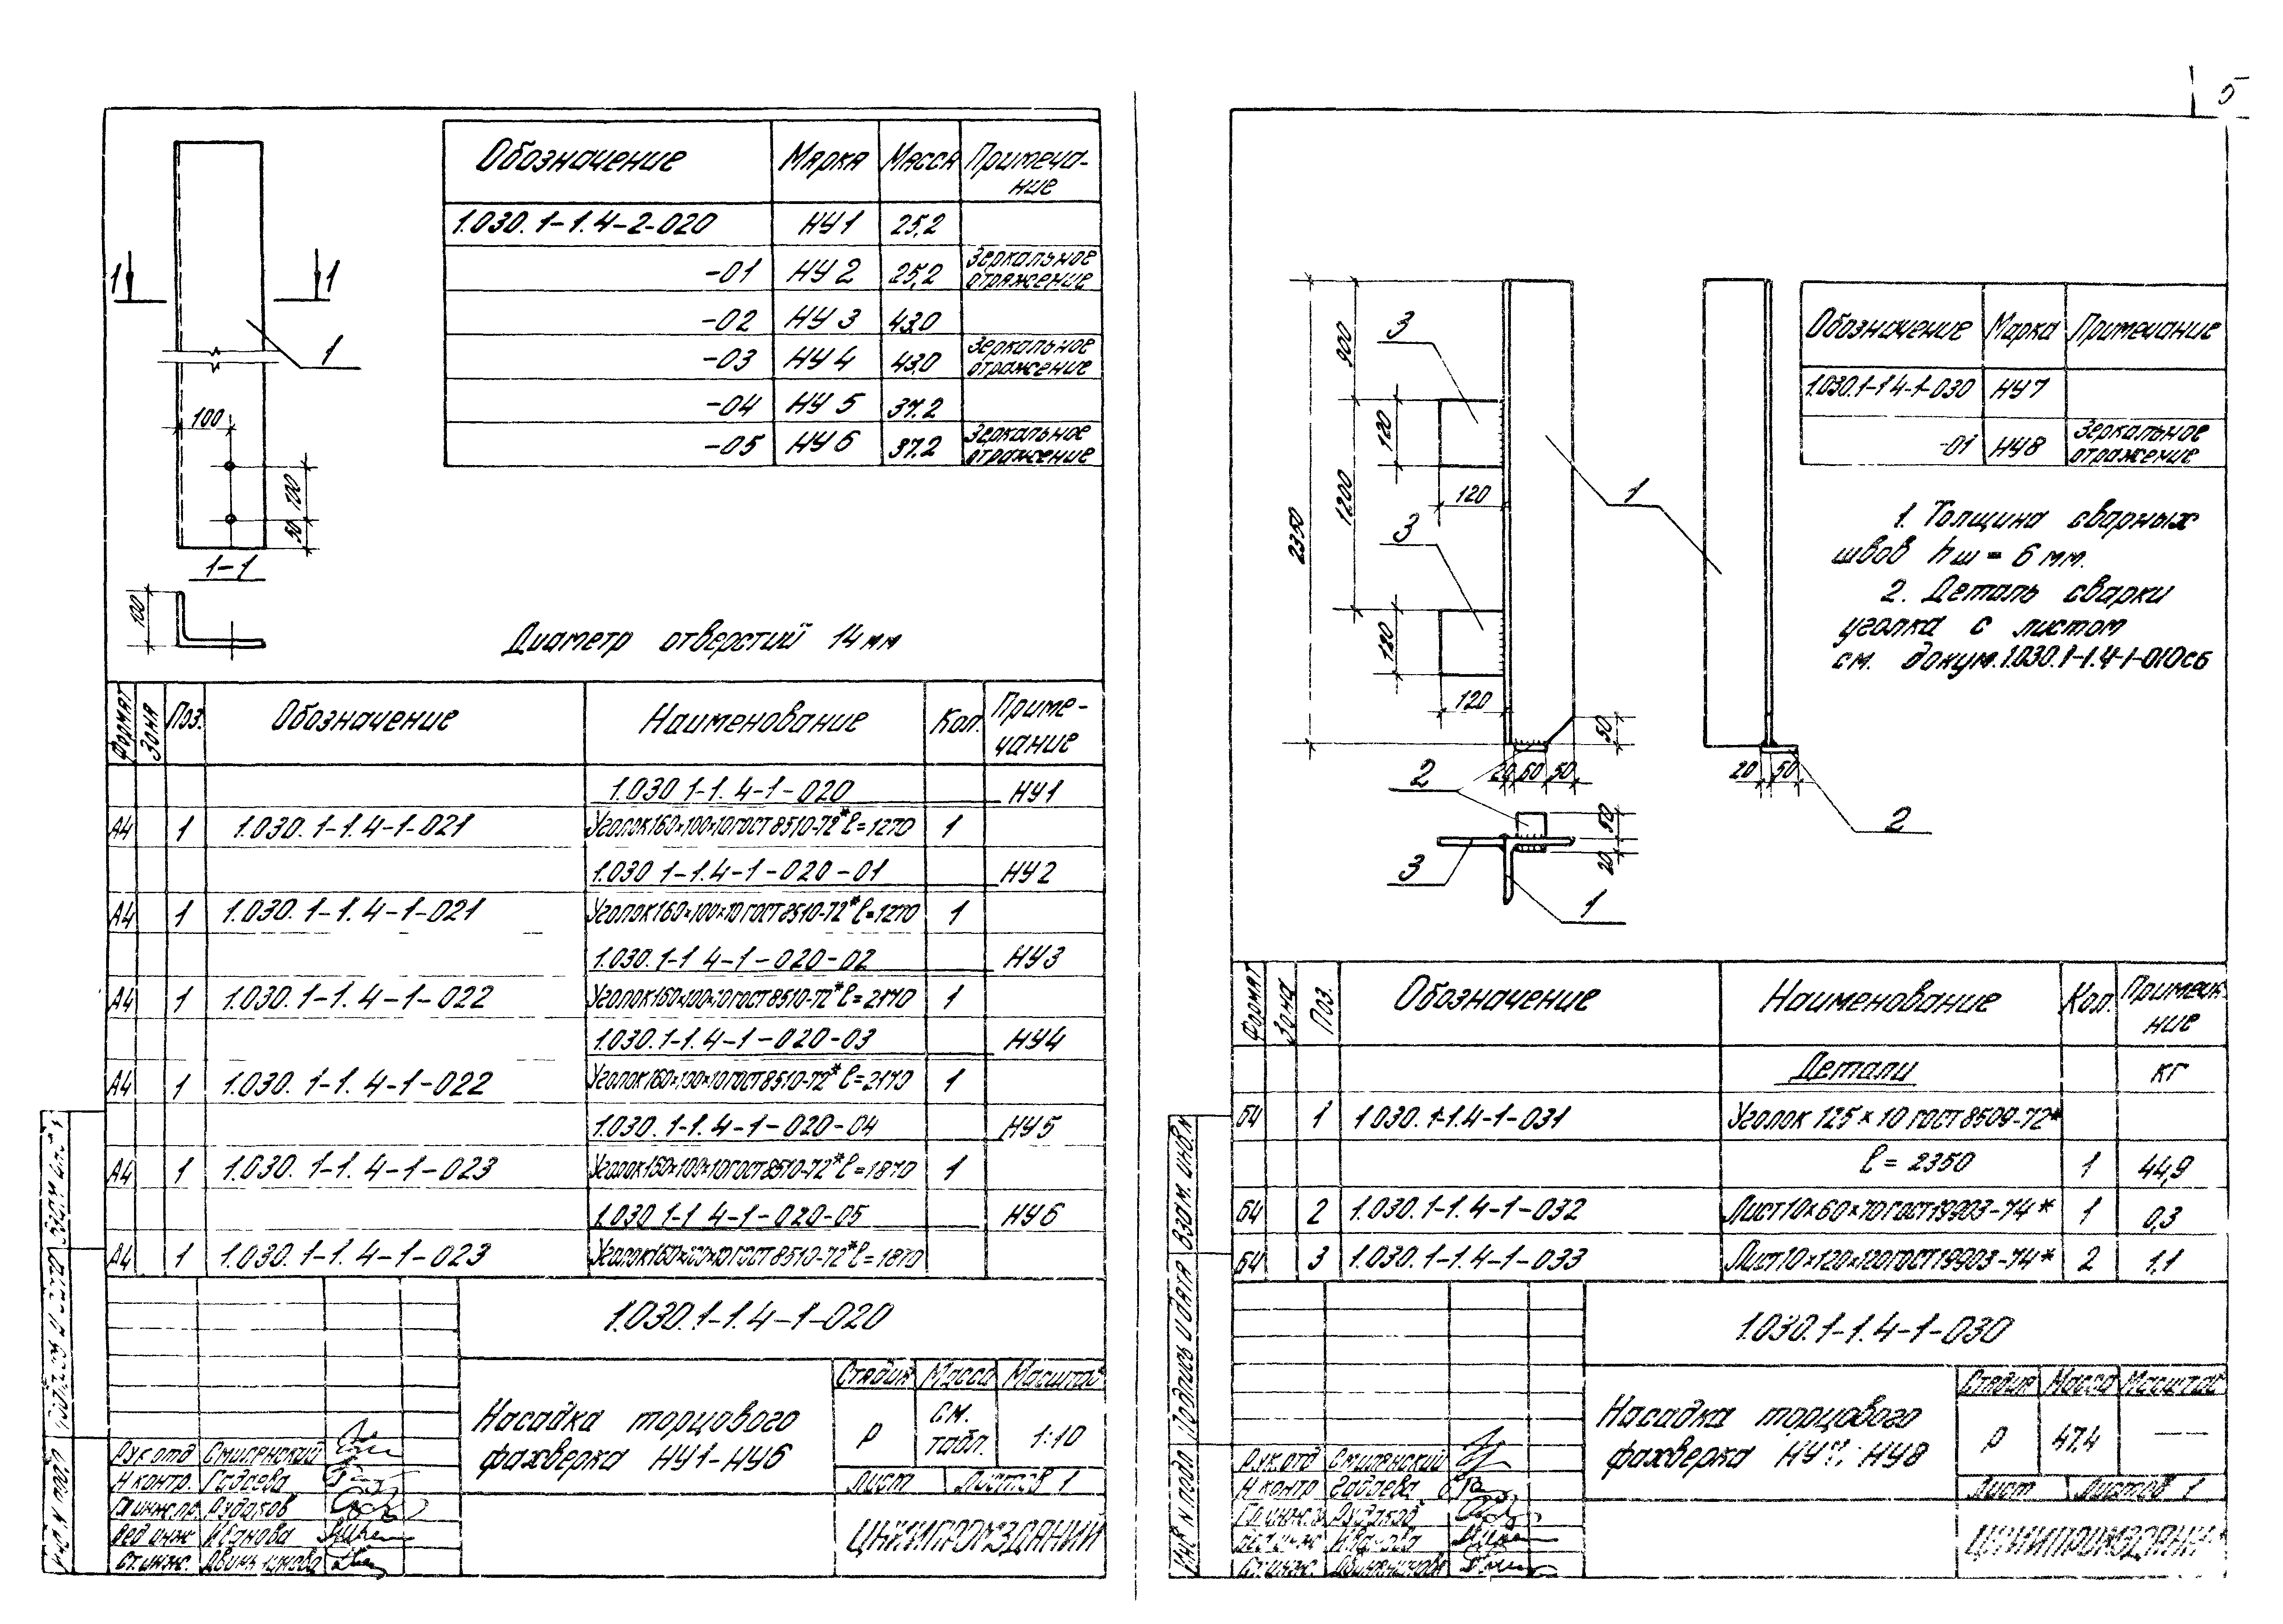 5
Обозначение Марка Масса Примеча-
ние
1.030.1-1.4-2-020 НУ1 25,2
-01 НУ2 25,2 Зеркальное
отражение
-02 НУ3 43,0
-03 НУ4 43,0 Зеркальное
отражение
-04 НУ5 37.2
-05 НУ6 37.2 Зеркальное
отражение
1 1
1
100
100
50
1-1
100
Диаметр отверстий 14мм
Формат Зона Поз. Обозначение Наименование Кол. Приме-
чание
1.030 1-1.4-1-020 НУ1
А4 1 1.030.1-1.4-1-021 Уголок160×100×10ГОСТ8510-72* ℓ=1270 1
1.030 1-1.4-1-020-01 НУ2
А4 1 1.030.1-1.4-1-021 Уголок160×100×10ГОСТ8510-72* ℓ=1270 1
1.030.1-1 4-1-020-02 НУ3
А4 1 1.030.1-1.4-1-022 Уголок160×100×10ГОСТ8510-72* ℓ=2170 1
1.030.1-1.4-1-020-03 НУ4
А4 1 1.030.1-1.4-1-022 Уголок160×100×10ГОСТ8510-72* ℓ=2170 1
1.030.1-1.4-1-020-04 НУ5
А4 1 1.030.1-1.4-1-023 Уголок160×100×10ГОСТ8510-72* ℓ=1870 1
1.030 1-1 4-1-020-05 НУ6
А4 1 1.030.1-1.4-1-023 Уголок160×100×10ГОСТ8510-72* ℓ=1870
1.030.1-1.4-1-020
Насадка торцового
фахверка НУ1-НУ6
Стадия Масса Масштаб
Р см.
табл. 1:10
Лист Листов 1
ЦНИИПРОМЗДАНИЙ
Рук.отд Смилянский
Н контр. Гадаева
Гл инж.пр. Рудаков
Вед инж Иванова
Ст.инж.
3
900
120
120
1200
2350
3
120
120
1
50
2 20 60 50
20 50
2
50
20
3
1
Обозначение Марка Примечание
1.030.1-1 4-1-030 НУ7
-01 НУ8 Зеркальное
отражение
1. Толщина сварных
швов hш = 6 мм.
2. Деталь сварки
уголка с листом
см. докум.1.030.1-1.4-1-010СБ
Формат Зона Поз. Обозначение Наименование Кол.
ние
Детали кг
Б4 1 1 030.1-1.4-1-031 Уголок 125×10 ГОСТ8509-72*
ℓ= 2350 1 44,9
Б4 2 1.030.1-1.4-1-032 Лист10×60×70ГОСТ19903-74* 1 0,3
Б4 3 1.030.1-1.4-1-033 Лист10×120×120ГОСТ19903-74* 2 1,1
1.030.1-1.4-1-030
Насадка торцового
фахверка НУ7; НУ8
Стадия Масса Масштаб
Р 47.4
Лист Листов 1
Рук.отд Смилянский
Н контр Гадаева
Рудаков
Иванова
Ст.инж.
Инв N подл Подпись и дата Взам. инв. N